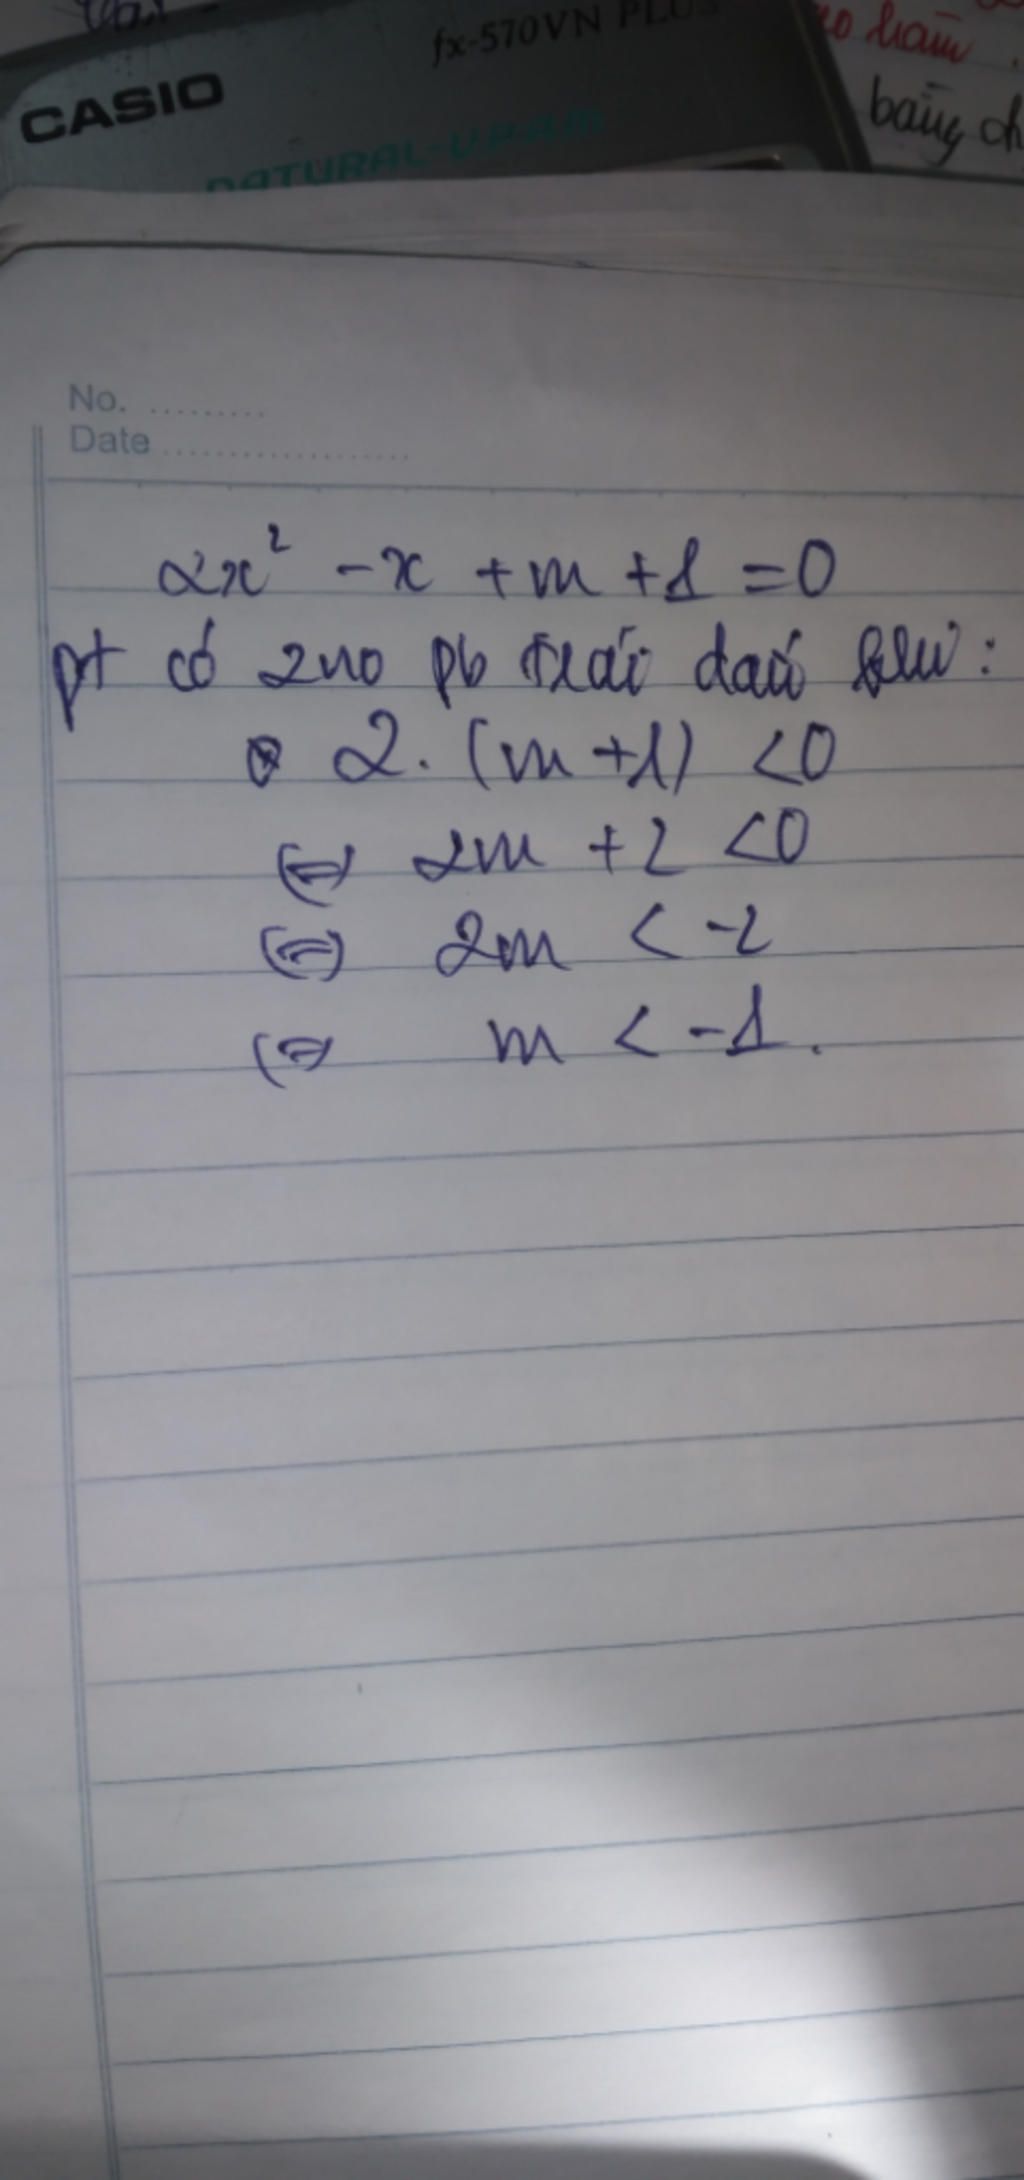 CASIO
fx-570VN PLUS
NATURAL-V.P.A.M.
bảng ch
No. .........
Date ...................
2x² - x + m + 1 = 0
pt có 2 no pb trái dấu khi:
2. (m + 1) < 0
⇔ 2m + 2 < 0
⇔ 2m < -2
⇔ m < -1.